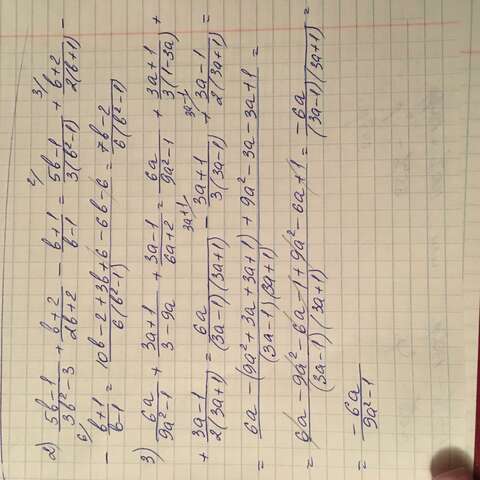 2) (5b-1)/(3b²-3) + (b+2)/(2b+2) - (b+1)/(b-1) = ²⁾(5b-1)/(3(b²-1)) + ³⁾(b+2)/(2(b+1)) -
- ⁶⁾(b+1)/(b-1) = (10b-2+3b+6-6b-6)/(6(b²-1)) = (7b-2)/(6(b²-1))
3) 6a/(9a²-1) + (3a+1)/(3-9a) + (3a-1)/(6a+2) = 6a/(9a²-1) + (3a+1)/(3(1-3a)) +
+ (3a-1)/(2(3a+1)) = 6a/((3a-1)(3a+1)) - ³ᵃ⁺¹⁾(3a+1)/(3(3a-1)) + ³ᵃ⁻¹⁾(3a-1)/(2(3a+1)) =
= (6a-(9a²+3a+3a+1)+9a²-3a-3a+1)/((3a-1)(3a+1)) =
= (6a-9a²-6a-1+9a²-6a+1)/((3a-1)(3a+1)) = (-6a)/((3a-1)(3a+1)) =
= - 6a/(9a²-1)